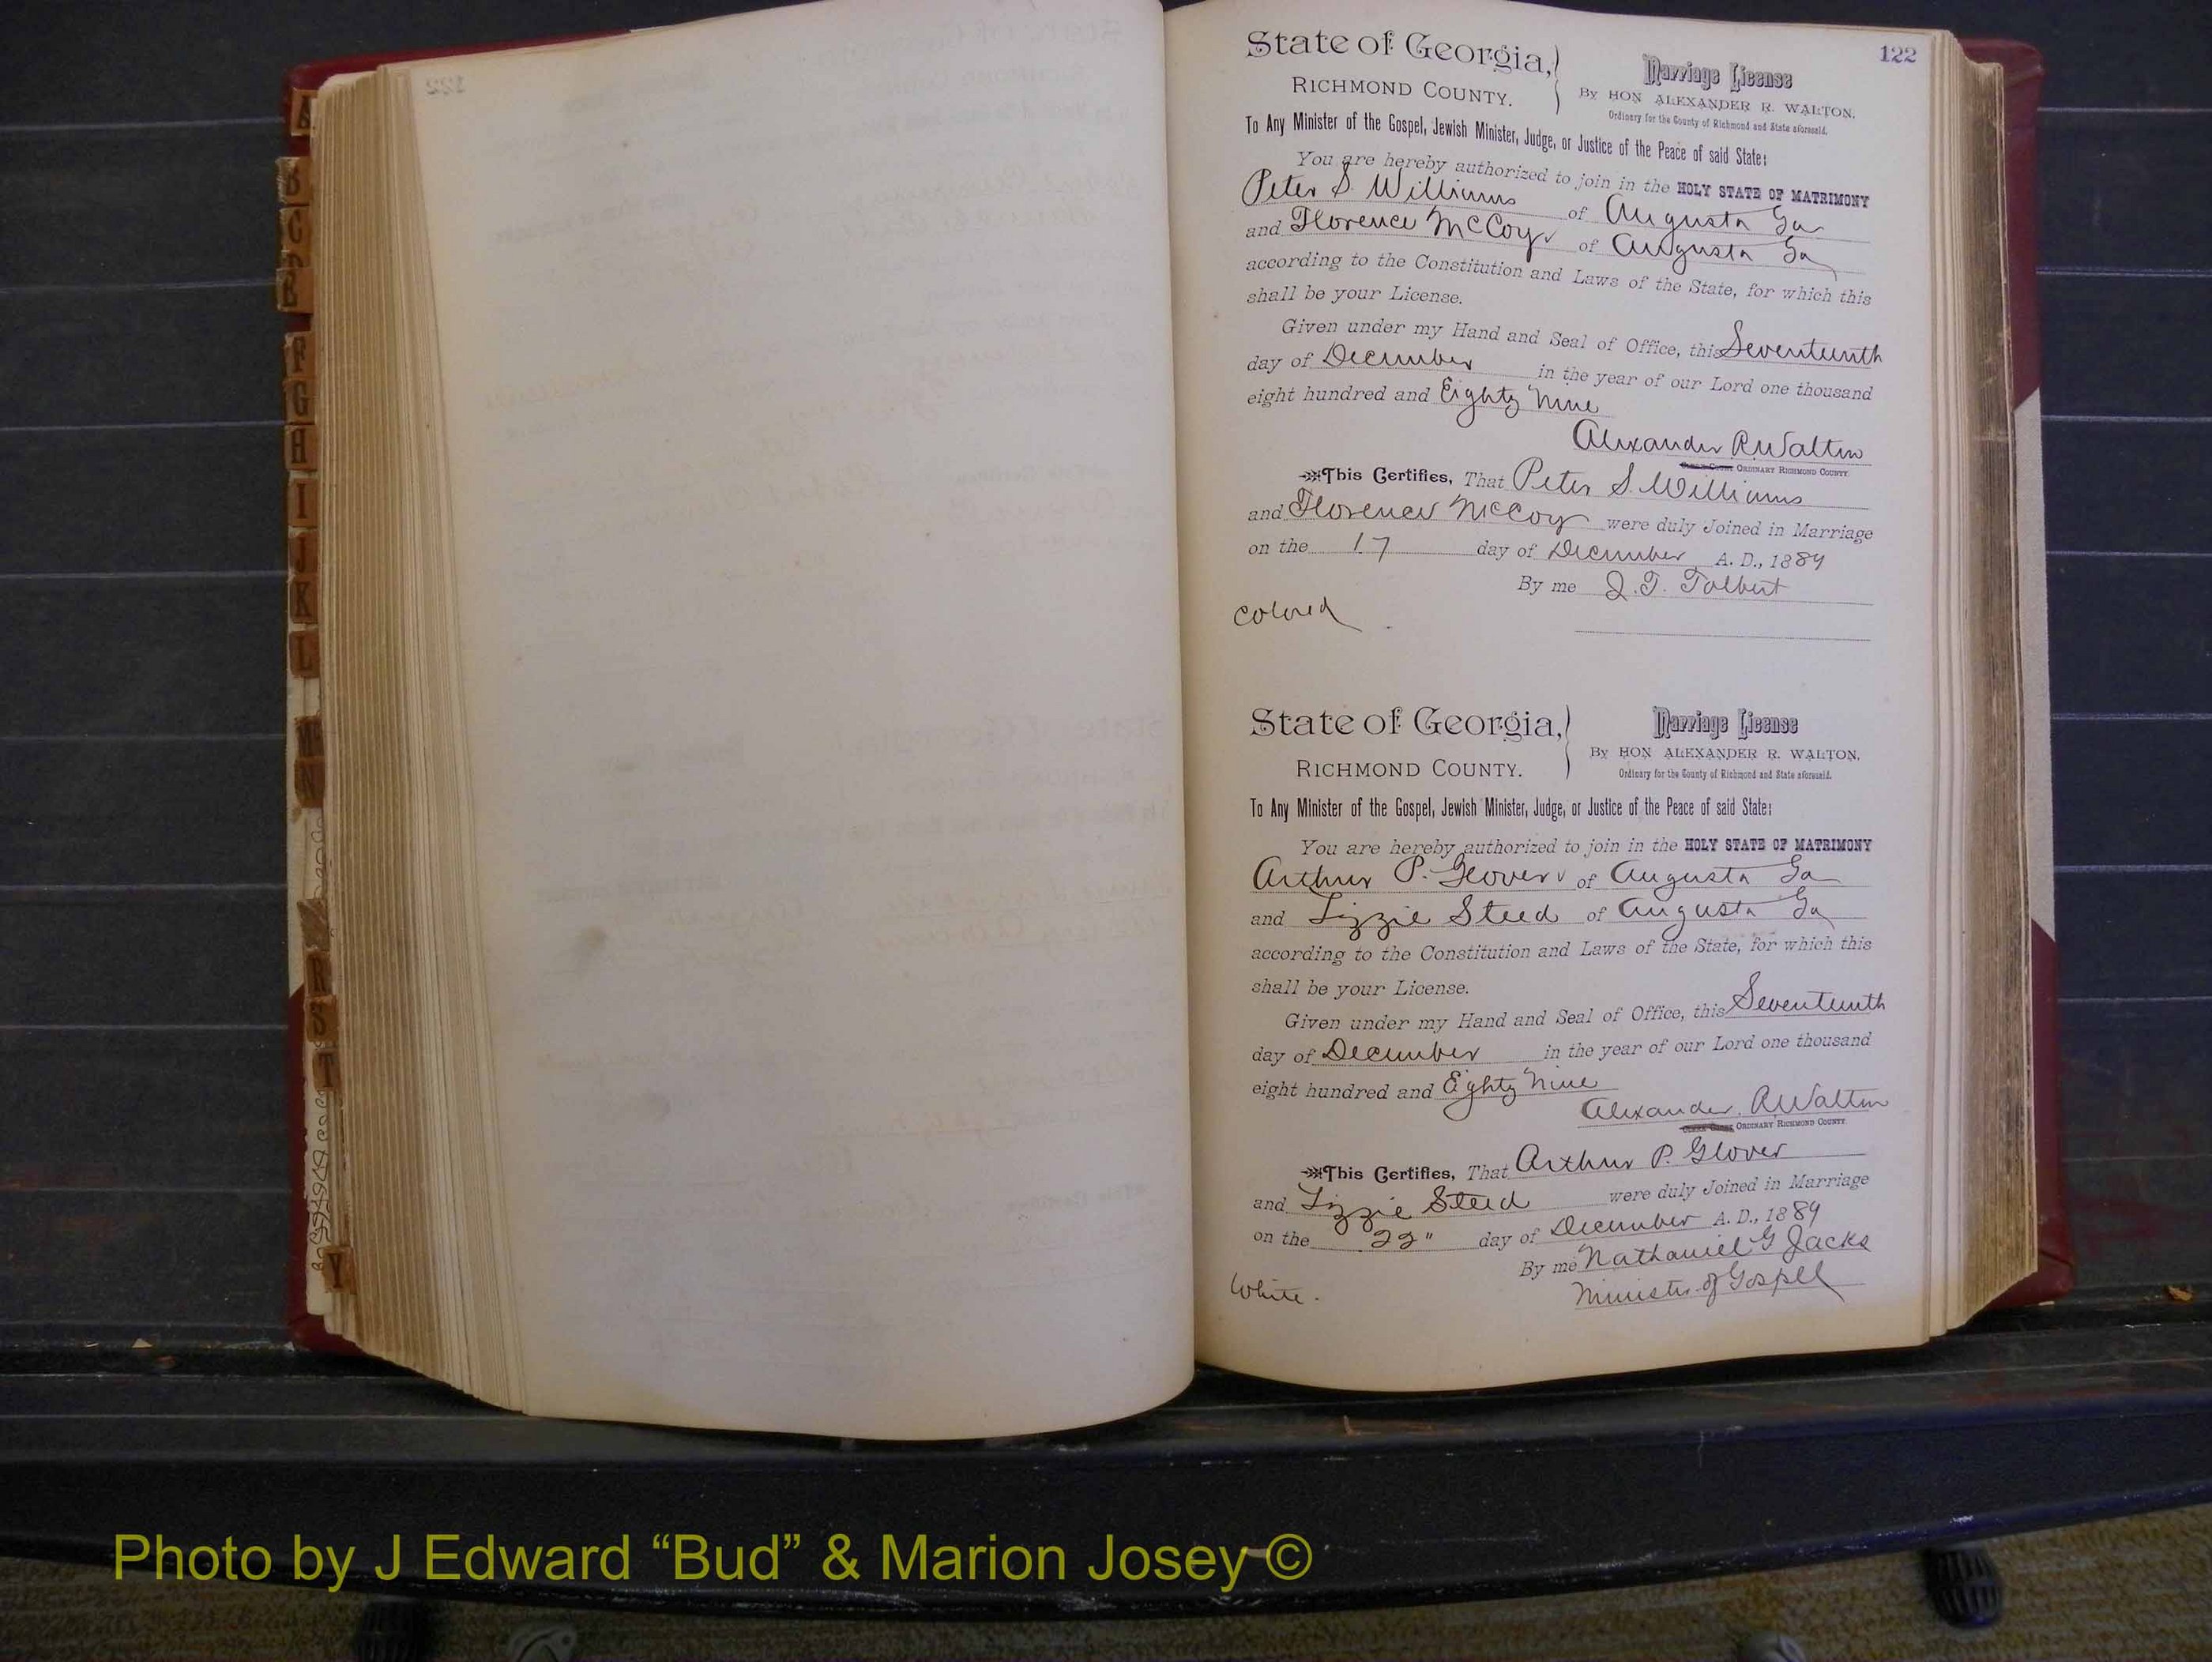 122
State of Georgia,
RICHMOND COUNTY.
Marriage License
By HON ALEXANDER R. WALTON,
Ordinary for the County of Richmond and State aforesaid.
To Any Minister of the Gospel, Jewish Minister, Judge, or Justice of the Peace of said State:
You are hereby authorized to join in the HOLY STATE OF MATRIMONY
Peter S. Williams of Augusta Ga
and Florence McCoy of Augusta Ga
according to the Constitution and Laws of the State, for which this
shall be your License.
Given under my Hand and Seal of Office, this Seventeenth
day of December in the year of our Lord one thousand
eight hundred and Eighty Nine
Alexander R Walton
ORDINARY RICHMOND COUNTY.
This Certifies, That Peter S. Williams
and Florence McCoy were duly Joined in Marriage
on the 17 day of December A. D., 1889
By me J. T. Tolbert
Colored
State of Georgia,
RICHMOND COUNTY.
Marriage License
By HON ALEXANDER R. WALTON,
Ordinary for the County of Richmond and State aforesaid.
To Any Minister of the Gospel, Jewish Minister, Judge, or Justice of the Peace of said State:
You are hereby authorized to join in the HOLY STATE OF MATRIMONY
Arthur P. Glover of Augusta Ga
and Lizzie Steed of Augusta Ga
according to the Constitution and Laws of the State, for which this
shall be your License.
Given under my Hand and Seal of Office, this Seventeenth
day of December in the year of our Lord one thousand
eight hundred and Eighty Nine
Alexander R Walton
ORDINARY RICHMOND COUNTY.
This Certifies, That Arthur P. Glover
and Lizzie Steed were duly Joined in Marriage
on the 22" day of December A. D., 1889
By me Nathaniel G Jacks
Minister of Gospel
White.
A
B
C
F
G
H
I
J
K
L
N
R
S
T
Y
Photo by J Edward “Bud” & Marion Josey ©